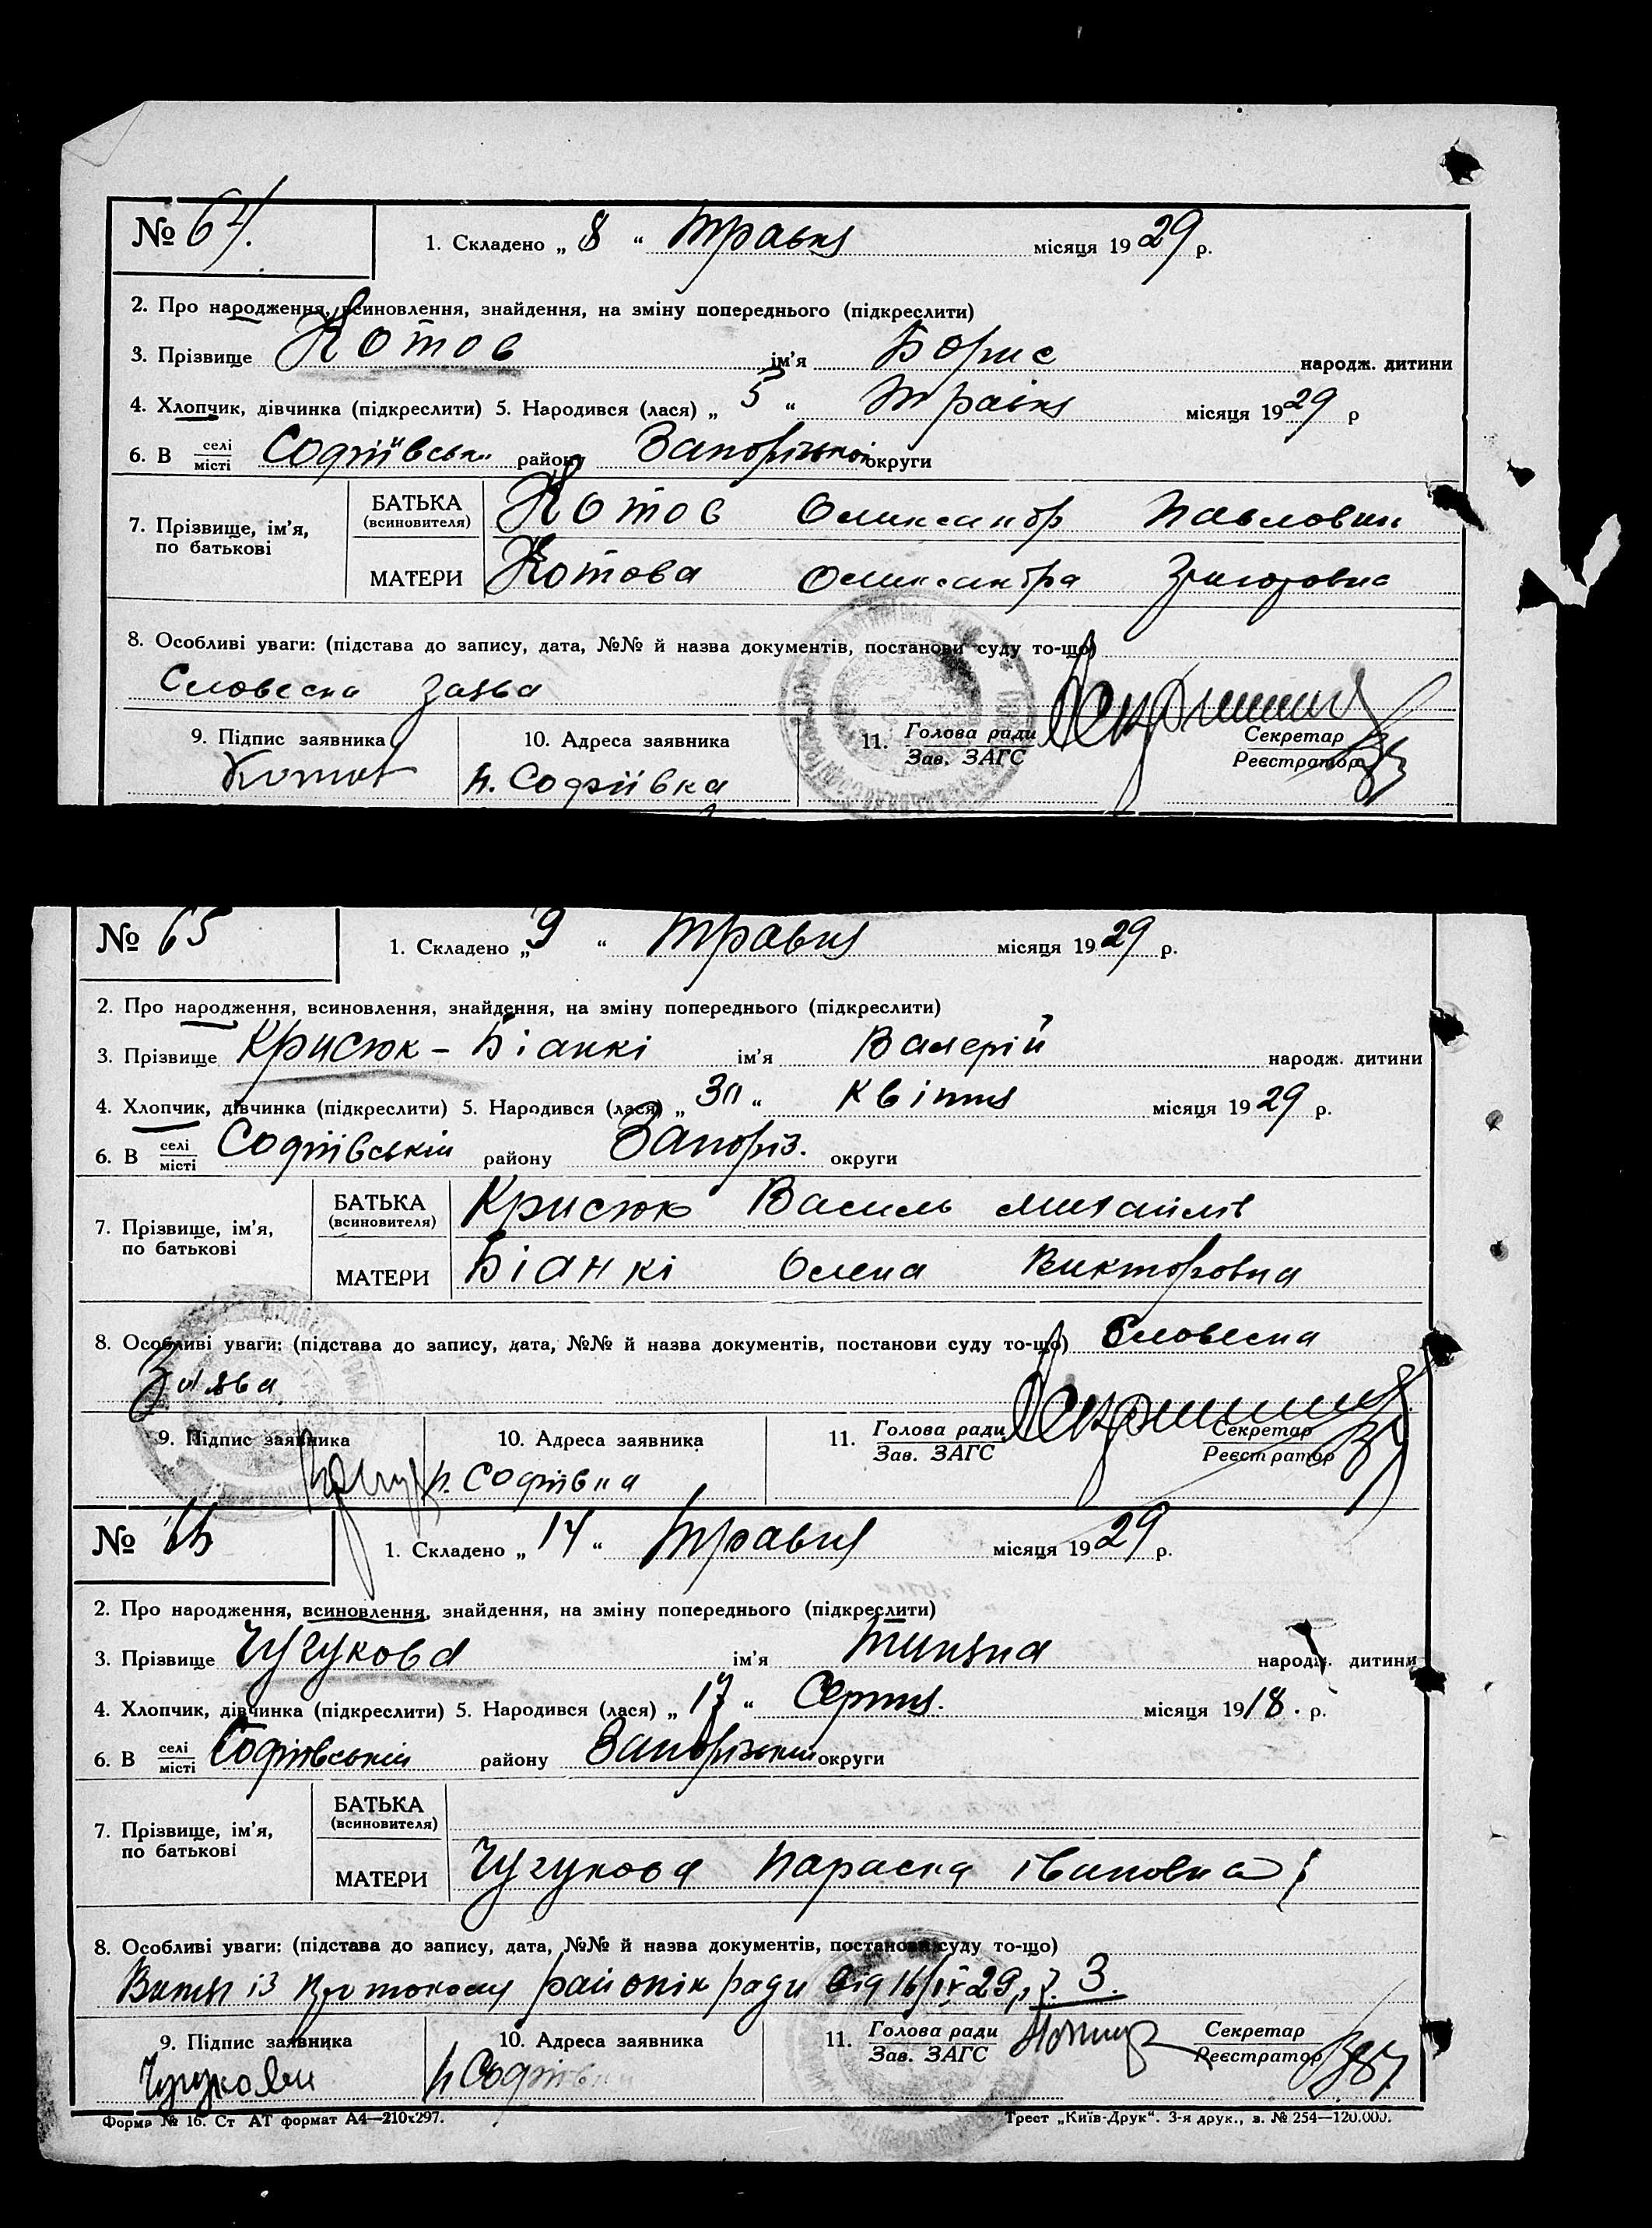 № 64.
1. Складено „ 8 “ травня місяця 1929 р.
2. Про народження, всиновлення, знайдення, на зміну попереднього (підкреслити)
3. Прізвище Котов ім’я Борис народж. дитини
4. Хлопчик, дівчинка (підкреслити) 5. Народився (лася) „ 5 “ травня місяця 1929 р
6. В селі місті Софіївськ.. району Запорізької округи
7. Прізвище, ім’я, по батькові
БАТЬКА (всиновителя) Котов Олександр Павлович
МАТЕРИ Котова Олександра Григоровна
8. Особливі уваги: (підстава до запису, дата, №№ й назва документів, постанови суду то-що)
Словесна заява
9. Підпис заявника 10. Адреса заявника 11. Голова ради Зав. ЗАГС Секретар Реєстратор
Котов п. Софіївка
№ 65
1. Складено „ 9 “ травня місяця 1929 р.
2. Про народження, всиновлення, знайдення, на зміну попереднього (підкреслити)
3. Прізвище Крисюк - Біанкі ім’я Валерій народж. дитини
4. Хлопчик, дівчинка (підкреслити) 5. Народився (лася) „ 30 “ квітня місяця 1929 р.
6. В селі місті Софіївській району Запоріз. округи
7. Прізвище, ім’я, по батькові
БАТЬКА (всиновителя) Крисюк Василь Михайлів
МАТЕРИ Біанкі Олена Викторовна
8. Особливі уваги: (підстава до запису, дата, №№ й назва документів, постанови суду то-що) Словесна
Заява
9. Підпис заявника 10. Адреса заявника 11. Голова ради Зав. ЗАГС Секретар Реєстратор
п. Софіївка
№ 66
1. Складено „ 14 “ травня місяця 1929 р.
2. Про народження, всиновлення, знайдення, на зміну попереднього (підкреслити)
3. Прізвище Чугукова ім’я народж. дитини
4. Хлопчик, дівчинка (підкреслити) 5. Народився (лася) „ 17 “ Серпня. місяця 1918. р.
6. В селі місті Софіївській району Запорізький округи
7. Прізвище, ім’я, по батькові
БАТЬКА (всиновителя)
МАТЕРИ Чугукова Параска Івановна
8. Особливі уваги: (підстава до запису, дата, №№ й назва документів, постанови суду то-що)
Витяг із протоколу ради від 16/IV 29 р. 3.
9. Підпис заявника 10. Адреса заявника 11. Голова ради Зав. ЗАГС Секретар Реєстратор
п Софіївка
Форма № 16. Ст АТ формат А4—210х297. Трест „Київ-Друк“. 3-я друк., з. № 254—120.000.